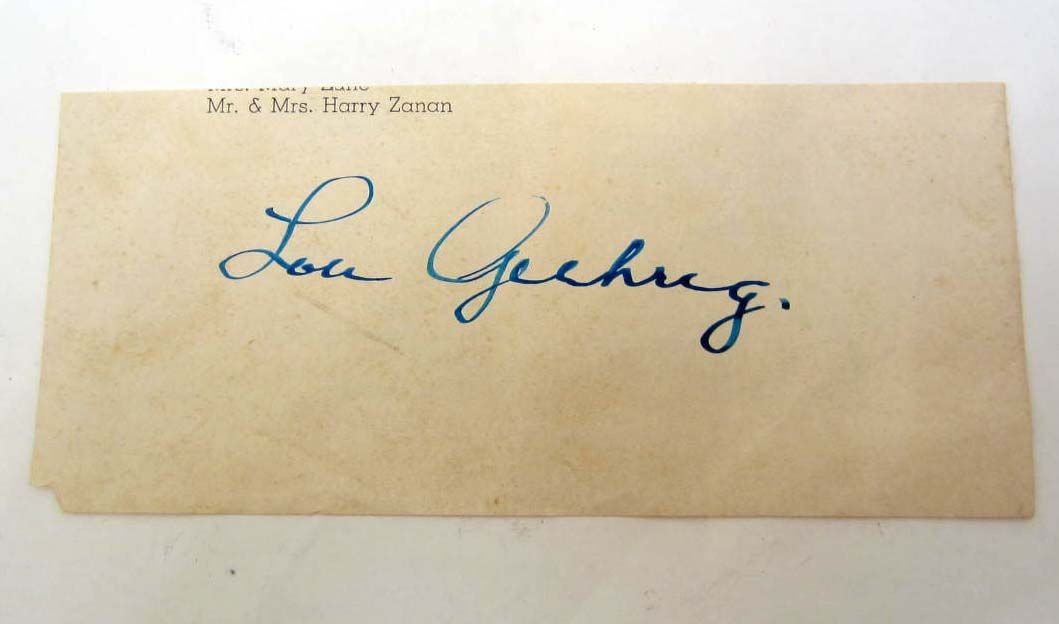 Mrs. Mary Zane
Mr. & Mrs. Harry Zanan
Lou Gehrig.